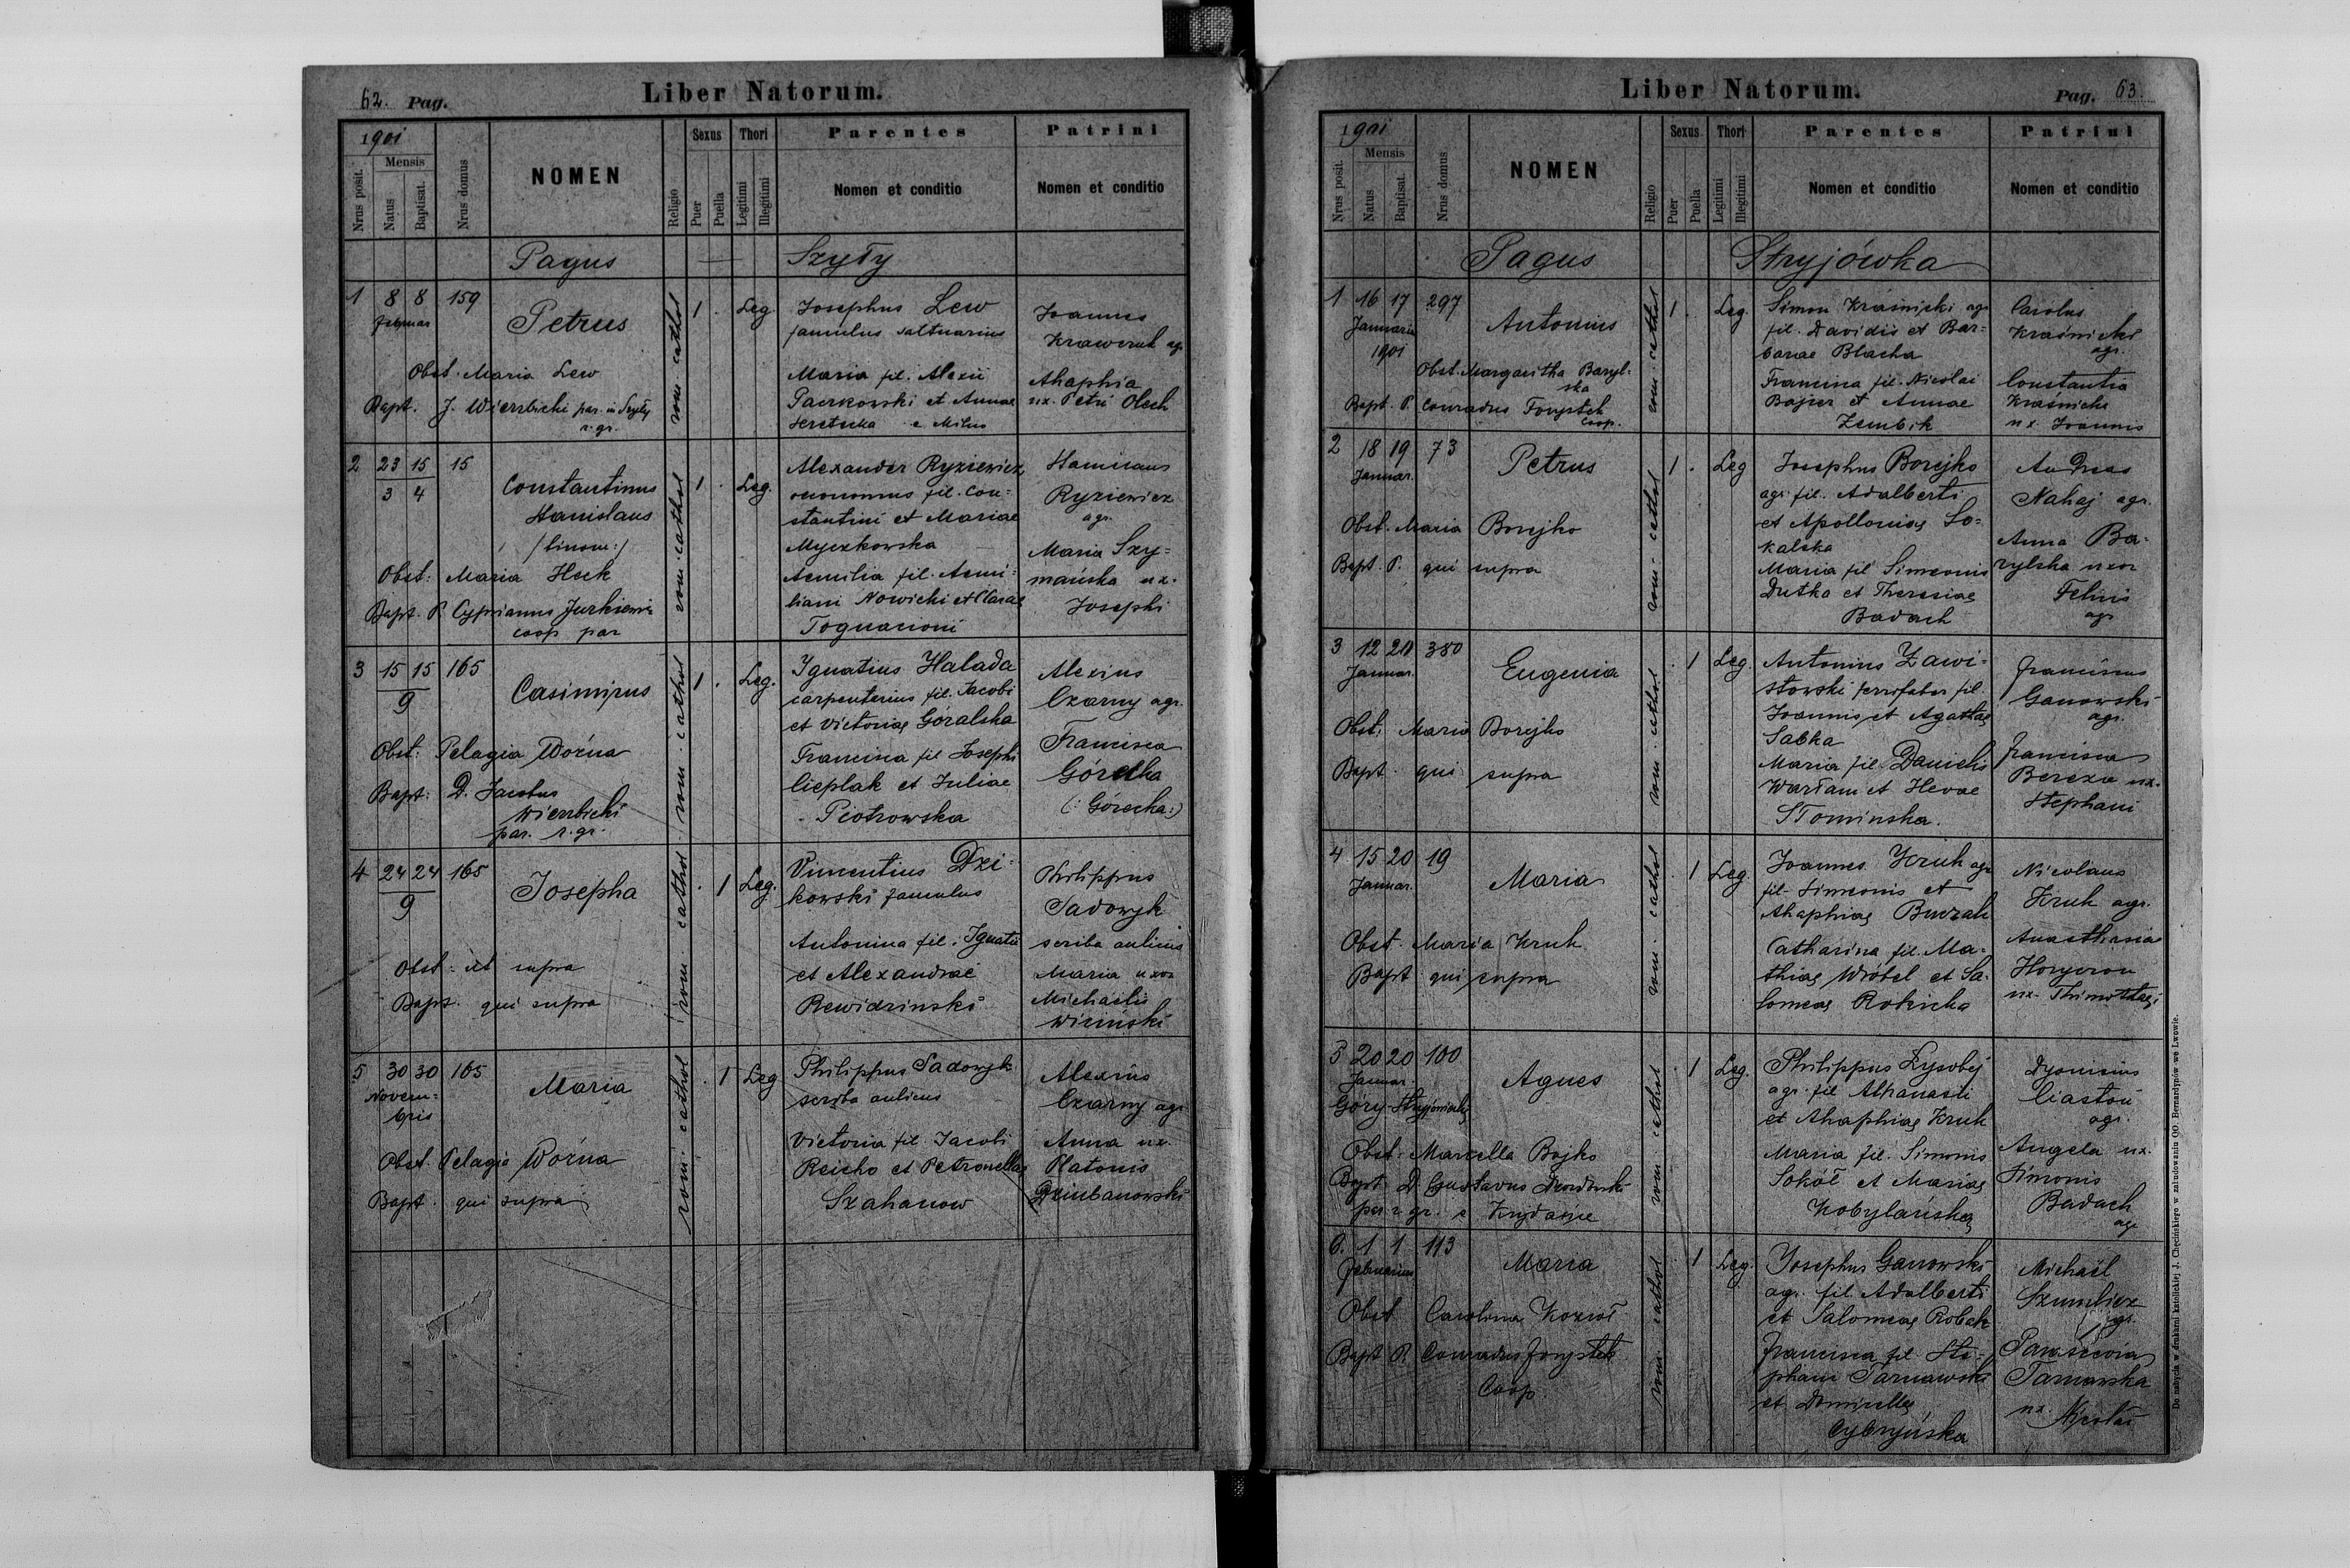 62. Pag.
Liber Natorum.
1901
Nrus posit.
Mensis
Natus
Baptisat.
Nrus domus
NOMEN
Religio
Sexus
Puer
Puella
Thori
Legitimi
Illegitimi
Parentes
Nomen et conditio
Patrini
Nomen et conditio
Pagus — Szyły
1 8 8 159
Februar
Petrus
rom. cathol
1 . Leg
Obst. Maria Lew
Bapt. J. Wierzbicki par. in Szyły
r. gr.
Josephus Lew
famulus saltuarius
Maria fil. Alexii
Paczkowski et Annae
Joannes
Krawczuk agr.
Ahaphia
ux. Petri Olech
2 23 15 15
3 4
Constantinus
Stanislaus
/:binom:/
rom. cathol
1 . Leg.
Obst: Maria Hook
Bapt. P. Cyprianus Jurkiewicz
coop par
Alexander Ryziewicz
oeconomus fil. Con=
stantini et Mariae
Myczkowska
Aemilia fil. Aemi=
liani Nowicki et Clarae
Tognarioni
Stanislaus
Ryziewicz
agr.
Maria Szy=
mańska ux.
Josephi
3 15 15 165
9
Casimirus
rom. cathol
1 . Leg.
Obst: Pelagia Woźna
Bapt: D. Jacobus
Wierzbicki
par. r. gr.
Ignatius Halada
carpenterius fil. Jacobi
et Victoriae Góralska
Francisca fil Josephi
Cieplak et Juliae
Piotrowska
Alexius
Czarny agr.
Francisca
Górecka
(:Górecka:)
4 24 24 165
9
Josepha
rom. cathol
. 1 Leg.
Obst: ut supra
Bapt. qui supra
Vincentius Dzi=
kowski famulus
Antonina fil. Ignatii
et Alexandrae
Rewidzinski
Philippus
Sadowyk
scriba aulicus
Maria uxor
Michaelis
Wiciński
5 30 30 165
Novem=
bris
Maria
rom. cathol
. 1 Leg
Obst. Pelagia Woźna
Bapt. qui supra
Philippus Sadowyk
scriba aulicus
Victoria fil. Jacobi
Reicho et Petronellae
Szahanow
Alexius
Czarny agr
Anna ux.
Platonis
Dziubanowski
Liber Natorum.
Pag. 63.
1901
Nrus posit.
Mensis
Natus
Baptisat.
Nrus domus
NOMEN
Religio
Sexus
Puer
Puella
Thori
Legitimi
Illegitimi
Parentes
Nomen et conditio
Patrini
Nomen et conditio
Pagus Stryjówka
1 16 17 297
Januarii
1901
Antonius
rom. cathol
1 . Leg.
Obst. Margaritha Baryl=
ska
Bapt. P. Conradus Forystek
Coop.
Simon Kraśnicki agr
fil. Davidis et Bar=
barae Blacha
Francisca fil. Nicolai
Bojzer et Annae
Zembik
Carolus
Kraśnicki
agr.
Constantia
Kraśnicka
ux. Joannis
2 18 19 73
Januar.
Petrus
rom. cathol
1 . Leg
Obst. Maria Borejko
Bapt. P. qui supra
Josephus Borejko
agr. fil. Adalberti
et Apolloniae So=
kalska
Maria fil Simeonis
Dutka et Theresiae
Badach
Andreas
Nahaj agr.
Anna Ba=
rylska uxor
Felicis
agr
3 12 20 380
Januar.
Eugenia
rom. cathol
. 1 Leg.
Obst: Maria Borejko
Bapt. qui supra
Antonius Zawi=
stowski ferrifaber fil.
Joannis et Agathae
Sabka
Maria fil. Danielis
Warłam et Hevae
Słominska.
Franciscus
Ganowski
agr.
Francisca
Bereza ux.
Stephani
4 15 20 19
Januar.
Maria
rom. cathol
. 1 Leg
Obst. Maria Kruk
Bapt qui supra
Joannes Kruk agr
fil. Simeonis et
Ahaphiae Budzak
Catharina fil. Ma=
thiae Wróbel et Sa=
lomeae Rokicka
Nicolaus
Kruk agr.
Anasthasia
Horyzon
ux. Thimothaei
5 20 20 100
Januar.
Góry Stryjowieckie
Agnes
rom. cathol
. 1 Leg.
Obst: Marcella Bojko
Bapt D. Gustavus
par r. gr.
Philippus Łysobej
agr. fil Athanasii
et Ahaphiae Kruk
Maria fil. Simonis
Sokół et Mariae
Kobylańska
Dyonisius
Ciastoń
agr.
Angela ux.
Simonis
Badach
agr
6. 1 1 113
Februarius
Maria
rom. cathol
. 1 Leg.
Obst Carolina Kozioł
Bapt P. Conradus Forystek
Coop.
Josephus Ganowski
agr. fil Adalberti
et Salomeae Robak
Francisca fil Ste=
phani Tarnawski
et Domicellae
Cybryńska
Michael
Szumlicz
agr.
Parascevia
Tarnawska
ux. Nicolai
Do nabycia w drukarni katolickiej J. Chęcińskiego w zabudowaniu OO. Bernardynów we Lwowie.